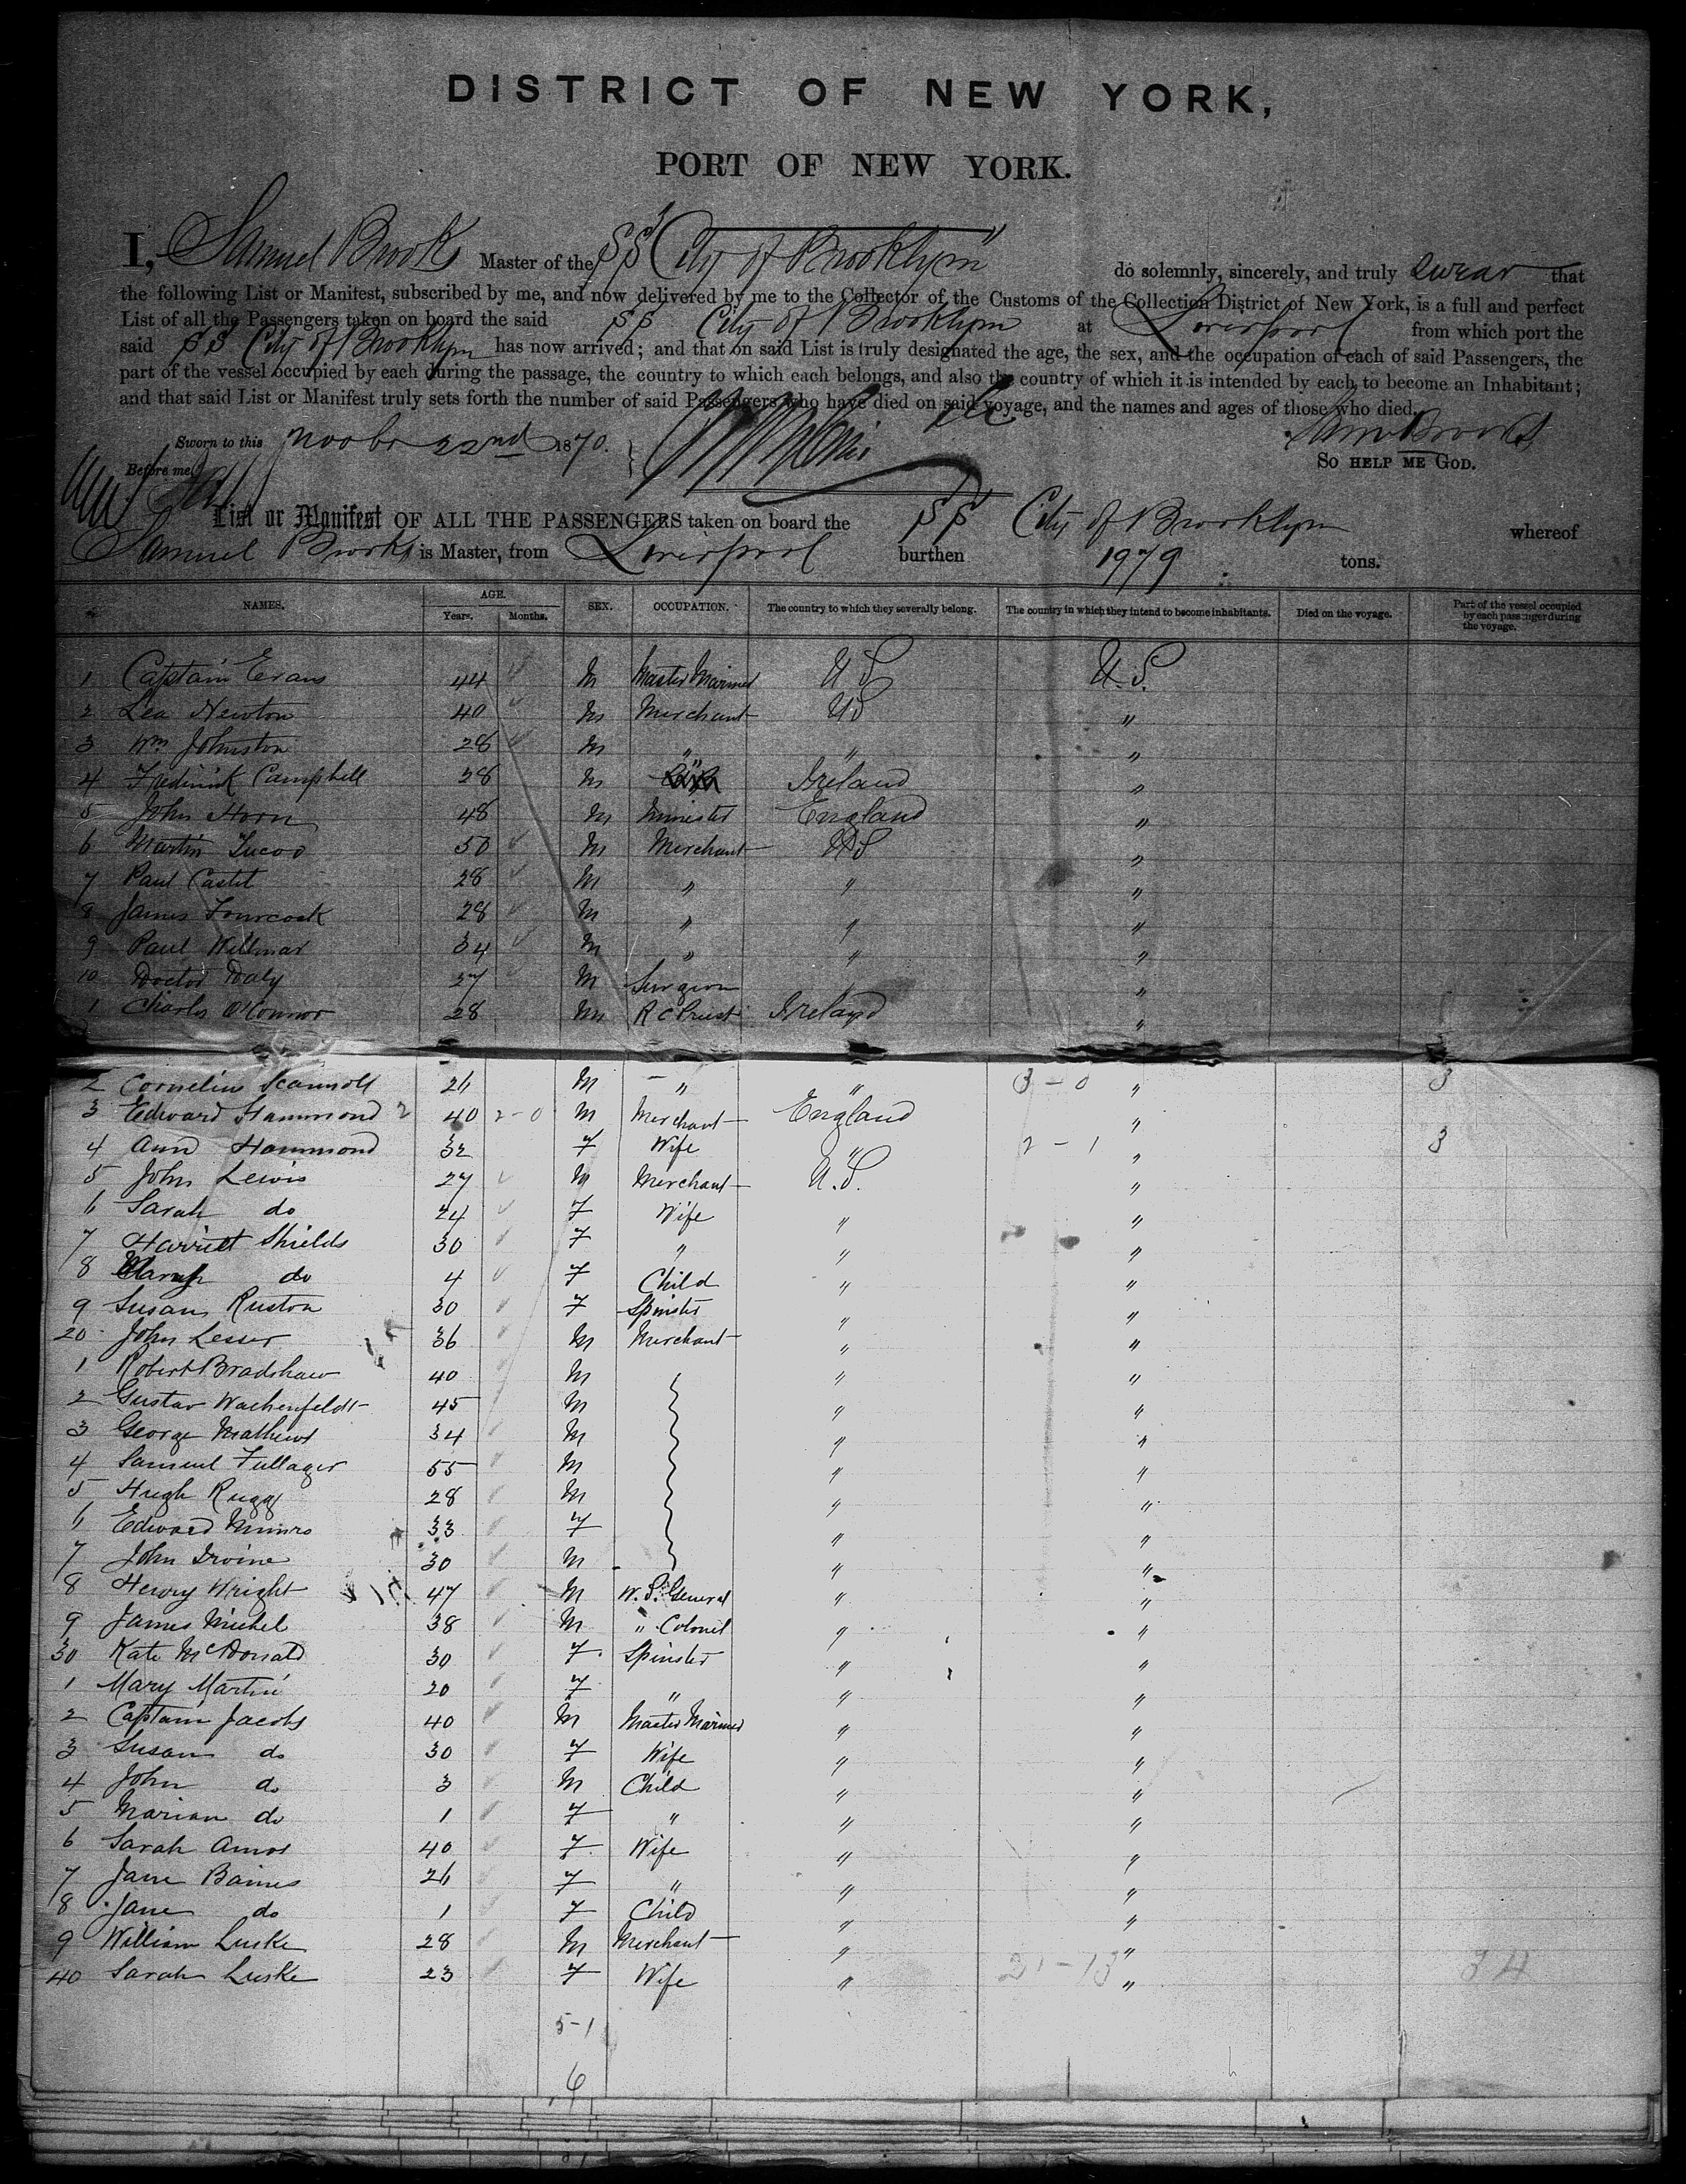 DISTRICT OF NEW YORK,
PORT OF NEW YORK.
I, Samuel Brooks Master of the SS "City of Brooklyn" do solemnly, sincerely, and truly swear that
the following List or Manifest, subscribed by me, and now delivered by me to the Collector of the Customs of the Collection District of New York, is a full and perfect
List of all the Passengers taken on board the said SS City of Brooklyn at Liverpool from which port the
said SS City of Brooklyn has now arrived; and that on said List is truly designated the age, the sex, and the occupation of each of said Passengers, the
part of the vessel occupied by each during the passage, the country to which each belongs, and also the country of which it is intended by each to become an Inhabitant;
and that said List or Manifest truly sets forth the number of said Passengers who have died on said voyage, and the names and ages of those who died.
Sworn to this Novbr 22nd 1870. Saml Brooks
Before me SO HELP ME GOD.
List or Manifest OF ALL THE PASSENGERS taken on board the SS City of Brooklyn whereof
Samuel Brooks is Master, from Liverpool burthen 1979 tons.
NAMES. AGE. Years. Months. SEX. OCCUPATION. The country to which they severally belong. The country in which they intend to become inhabitants. Died on the voyage. Part of the vessel occupied by each passenger during the voyage.
1 Captain Evans 44 M Master Mariner U S U.S.
2 Lea Newton 40 M Merchant US "
3 Wm Johnston 28 M " " "
4 Frederick Campbell 28 M Ireland "
5 John Horn 48 M Minister England "
6 Martin 50 M Merchant US "
7 Paul Castet 28 M " " "
8 James Fourcock 28 M " " "
9 Paul Willmar 34 M " " "
10 Doctor Daly 27 M Surgeon " "
1 Charles O'Connor 28 M R C Priest Ireland "
2 Cornelius Scannell 26 M " " 3-0 " 3
3 Edward Hammond 2 40 2-0 M Merchant England "
4 Ann Hammond 32 F Wife " 2-1 " 3
5 John Lewis 27 M Merchant U.S. "
6 Sarah do 24 F Wife " "
7 Harriet Shields 30 F " " "
8 do 4 F Child " "
9 Susan Ruston 30 F Spinster " "
20 John Lesser 36 M Merchant " "
1 Robert Bradshaw 40 M " "
2 Gustav Wachenfeldt 45 M " "
3 George Mathews 34 M " "
4 Samuel Fullager 55 M " "
5 Hugh Rugg 28 M " "
6 Edward Munro 33 F " "
7 John Irvine 30 M " "
8 Henry Wright 47 M W.S. General " "
9 James Michel 38 M " Colonel " "
30 Kate McDonald 30 F Spinster " "
1 Mary Martin 20 F " " "
2 Captain Jacobs 40 M Master Mariner " "
3 Susan do 30 F Wife " "
4 John do 3 M Child " "
5 Marian do 1 F " " "
6 Sarah Amos 40 F Wife " "
7 Jane Baines 26 F " " "
8 Jane do 1 F Child " "
9 William Luske 28 M Merchant " "
40 Sarah Luske 23 F Wife " 21-13 " 34
5-1
6